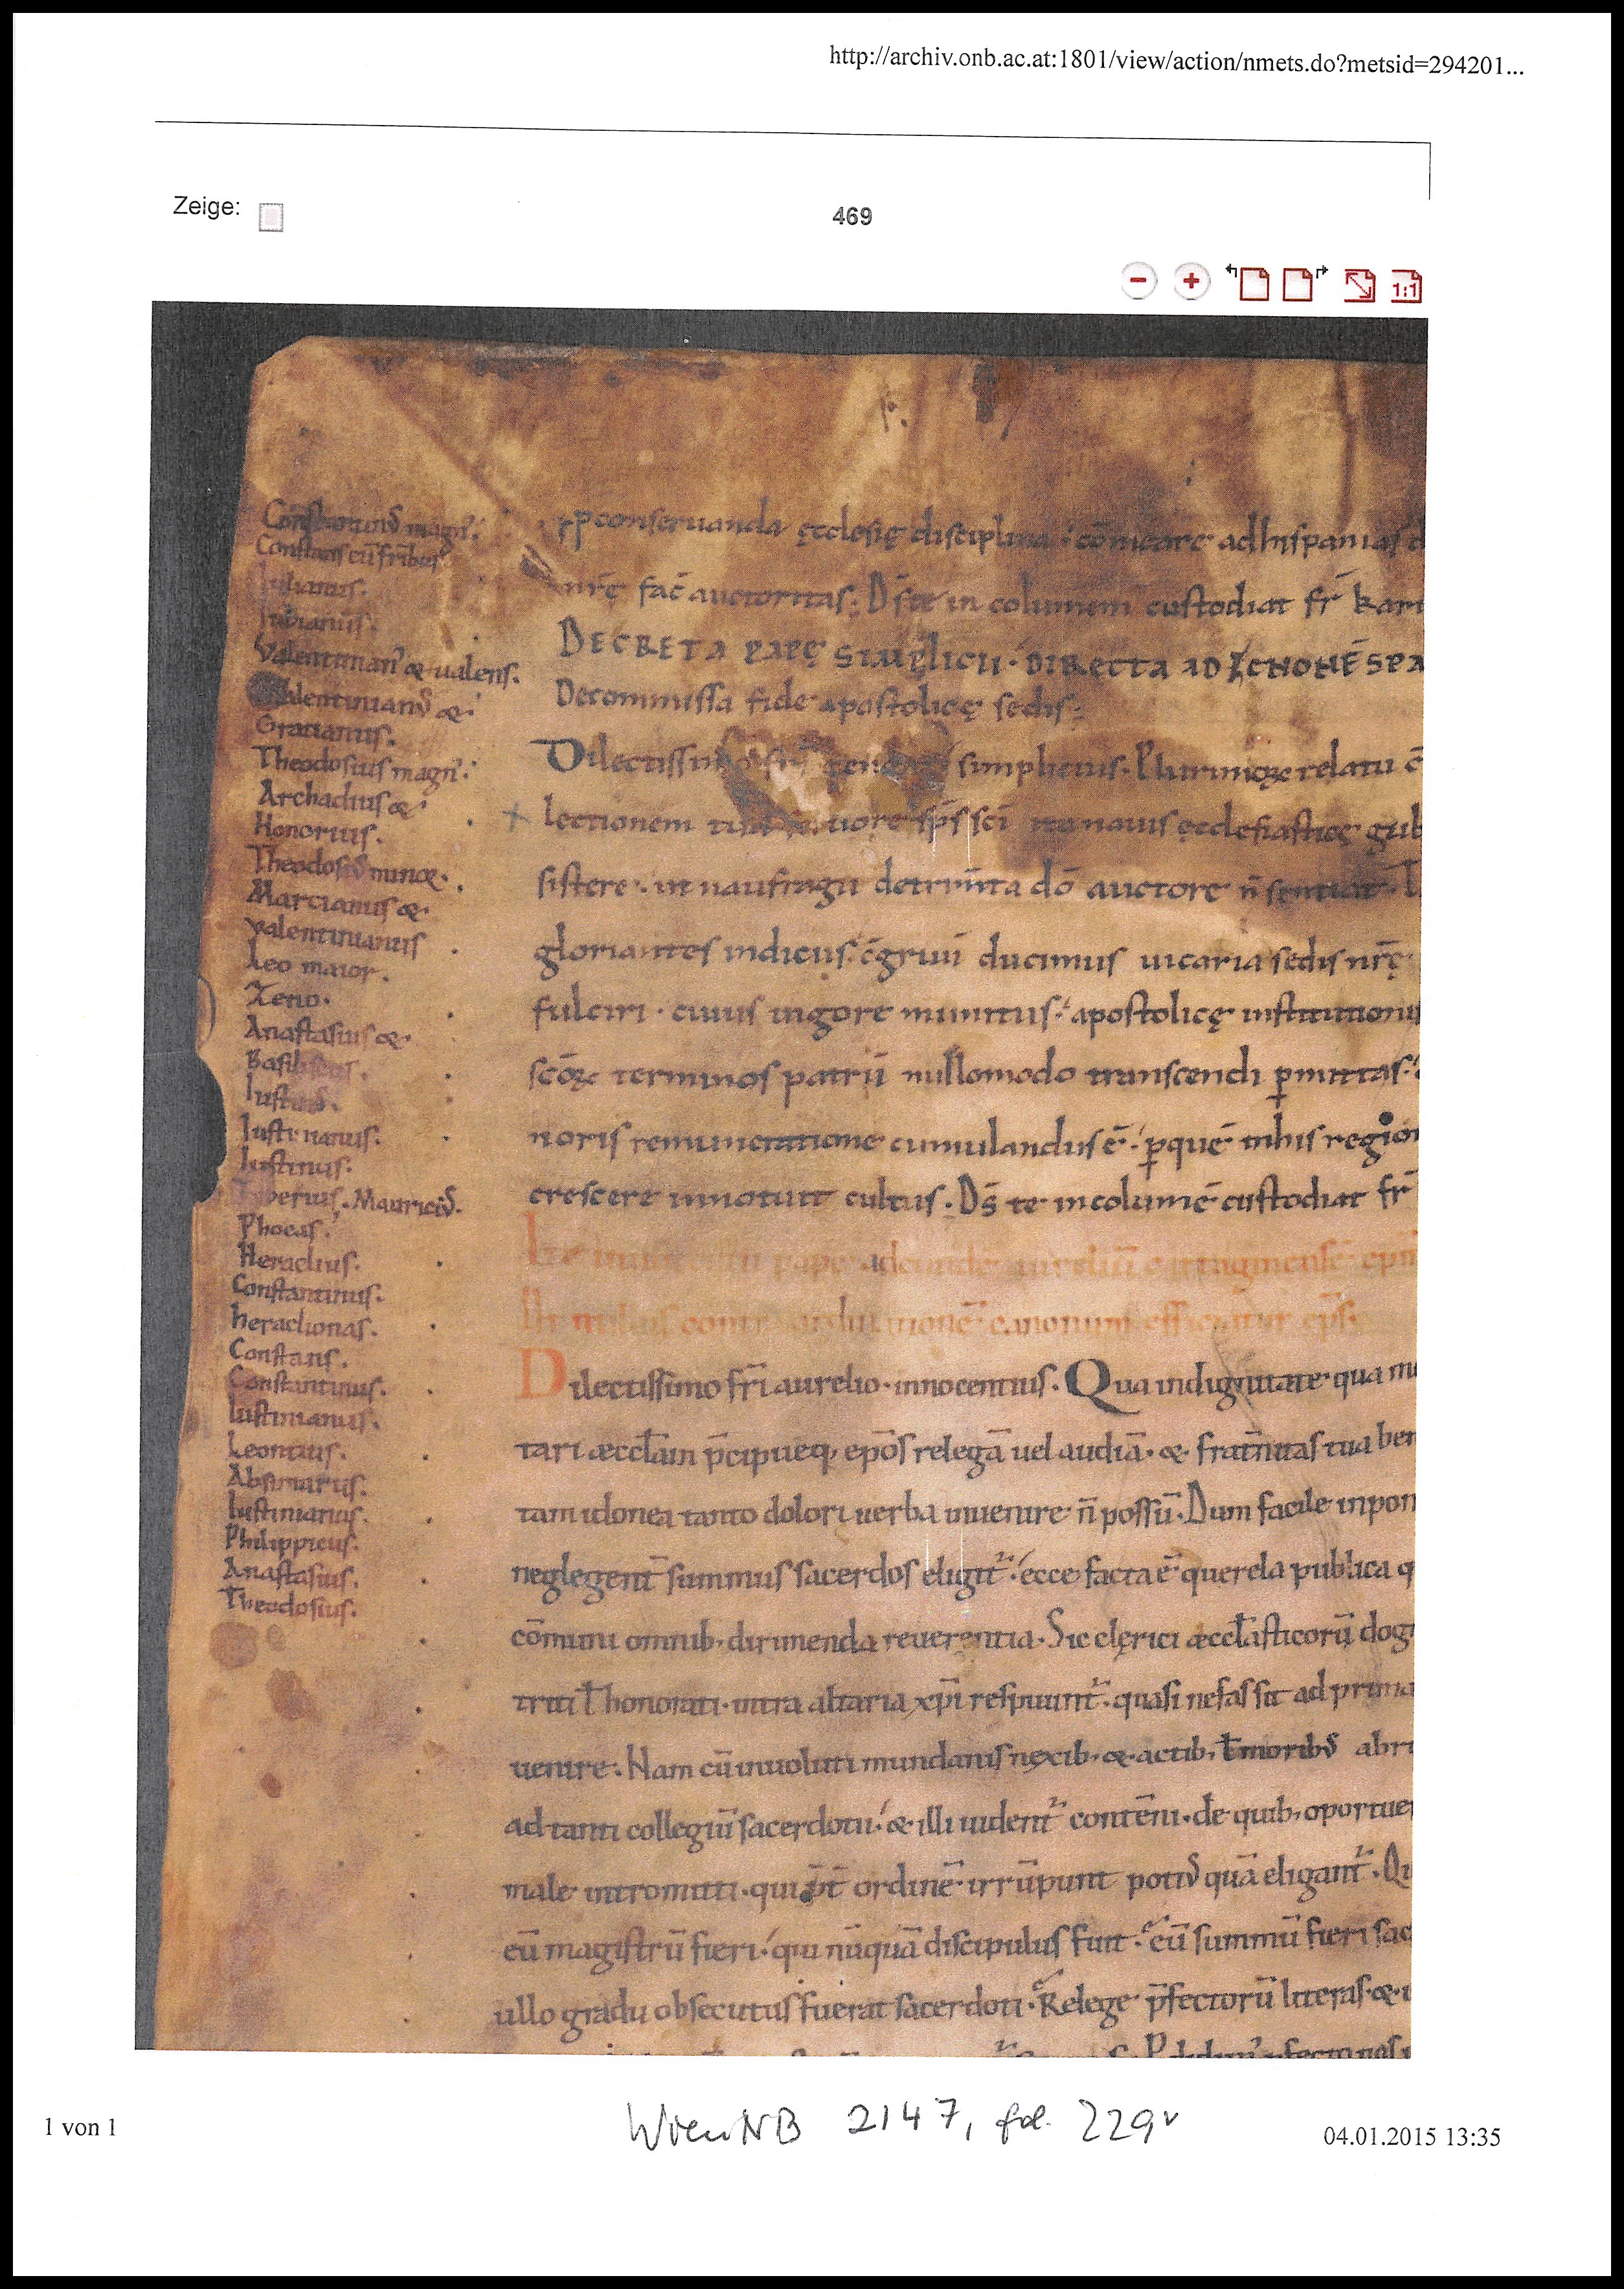 http://archiv.onb.ac.at:1801/view/action/nmets.do?metsid=294201...
Zeige:
469
1:1
Constantinus magn'.
Constans cū fr̄ibus
Iulianus.
Iubianus.
Valentinian' & ualens.
Valentinianus &
Gratianus.
Theodosius magn'.
Archadius &
Honorius.
Theodosius minor.
Marcianus &
Valentinianus
Leo maior.
Zeno.
Anastasius &
Basiliscus.
Iustinus.
Iustinianus.
Iustinus.
Tiberius. Mauricius.
Phocas.
Heraclius.
Constantinus.
heraclionas.
Constans.
Constantinus.
Iustinianus.
Leontius.
Absimarus.
Iustinianus.
Philippicus.
Anastasius.
Theodosius.
p conseruanda ęcclesię disciplina. cōmeare ad hispanias
nr̄ę fac̄ auctoritas. Ds̄ te incolumem custodiat fr̄ kari
DECRETA PAPĘ SIMPLICII. DIRECTA AD ZENONĒ SPA
De commissa fide apostolicę sedis.
Dilectissimo simplicius. Plurimoꝝ relatu c̄
lectionem sp̄s sc̄i ita nauis ęcclesiasticę gub
sistere. ut naufragii detrim̄ta dō auctore n̄ sentiat.
gloriantes indiciis. c̄gruū ducimus uicaria sedis nr̄ę
fulciri. cuius uigore munitus. apostolicę institutionis
sc̄oꝝ terminos patrū nullomodo transcendi ꝑmittas.
noris remuneratione cumulandus ē. ꝑ quē in his region
crescere innotuit cultus. Ds̄ te incolumē custodiat fr̄
papę ad eundē aureliū cartaginensē ep̄m
contra ordinationē canonum efficiatur ep̄s.
Dilectissimo fr̄i aurelio. innocentius. Qua indignitate qua mu
tari æccl̄am p̄cipueq; ep̄os relegā uel audiā. & frat̄nitas tua ben
tam idonea tanto dolori uerba inuenire n̄ possū. Dum facile inpon
neglegent̄ summus sacerdos eligit̄. ecce facta ē querela publica q
cōmuni omnib; dirimenda reuerentia. Sic clęrici æccl̄asticorū dog
triti ł honorati. intra altaria xp̄i respuunt̄. quasi nefas sit ad prima
uenire. Nam cū inuoluti mundanis nexib; & actib; ł moribus abri
ad tanti collegiū sacerdotii. & illi uident̄ contēni. de quib; oportuer
male intromitti. qui p̄t ordinē irrūpunt potius quā eligant̄. Qu
eū magistrū fieri. qui nūquā discipulus fuit. eū summū fieri sac
ullo gradu obsecutus fuerat sacerdoti. Relege p̄fectorū literas. &
Wien NB 2147, fol. 229v
1 von 1
04.01.2015 13:35